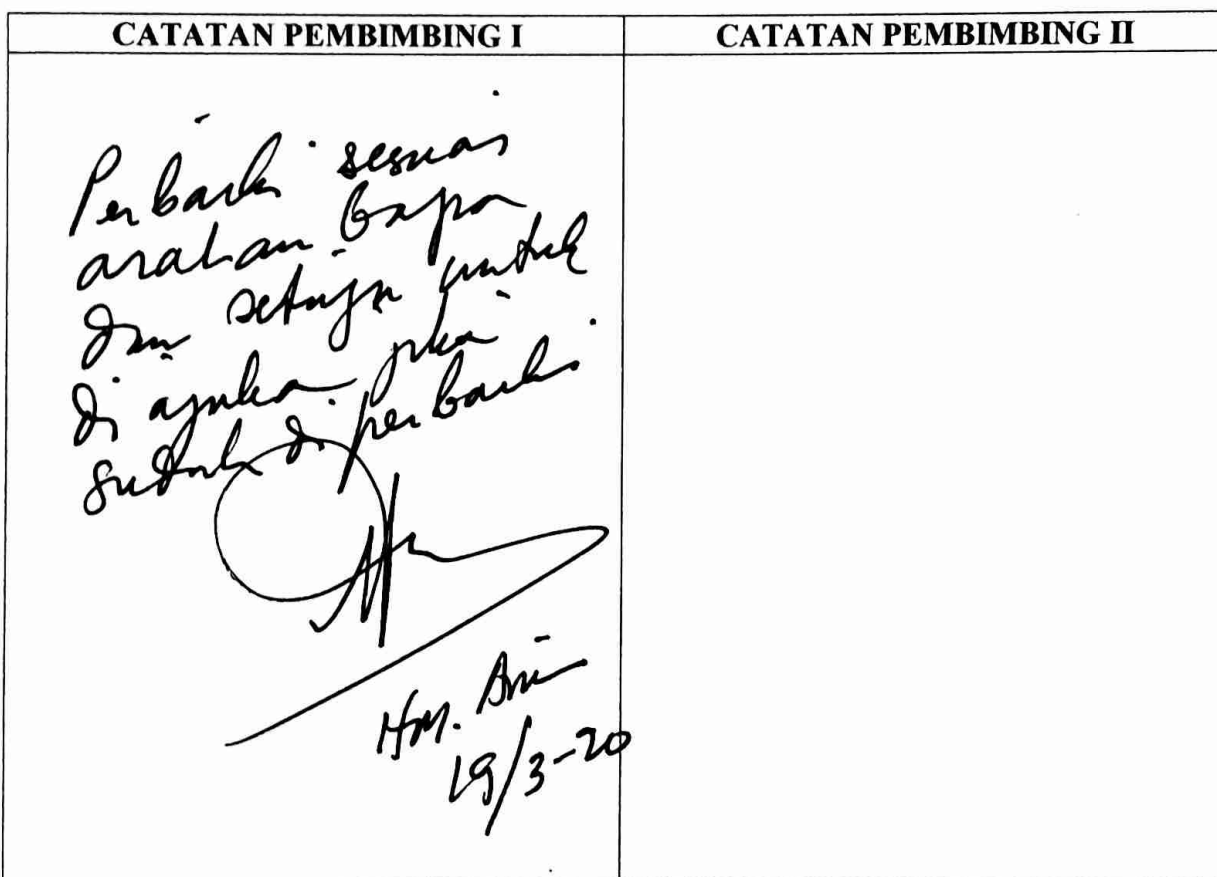 CATATAN PEMBIMBING I
CATATAN PEMBIMBING II
Perbaiki sesuai
arahan bapa
dan setuju untuk
di ajuka jika
sudah di perbaiki
HM.
19/3-20